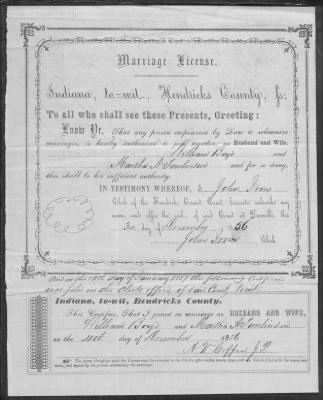 Marriage License.
Indiana, to=wit, Hendricks County, ss:
To all who shall see these Presents, Greeting:
Know Ye, That any person empowered by Law to solemnize
marriages, is hereby authorized to join together, as Husband and Wife,
William Boyd and
Martha A Tomlinson and for so doing,
this shall be his sufficient authority.
IN TESTIMONY WHEREOF, I, John Irons
Clerk of the Hendricks Circuit Court, hereunto subscribe my
name, and affix the seal of said Court, at Danville, this
3rd day of December 1856
John Irons Clerk
And on the day of January 1857 the following Certificate
was filed in the Clerks office of said County, to wit
Indiana, to=wit, Hendricks County.
This Certifies, That I joined in marriage as HUSBAND AND WIFE,
William Boyd and Martha A Tomlinson
on the 4th day of December 1856